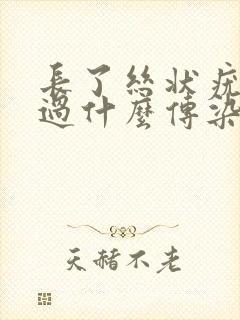 長了絲狀疣
過什麼傳染
天赭不老